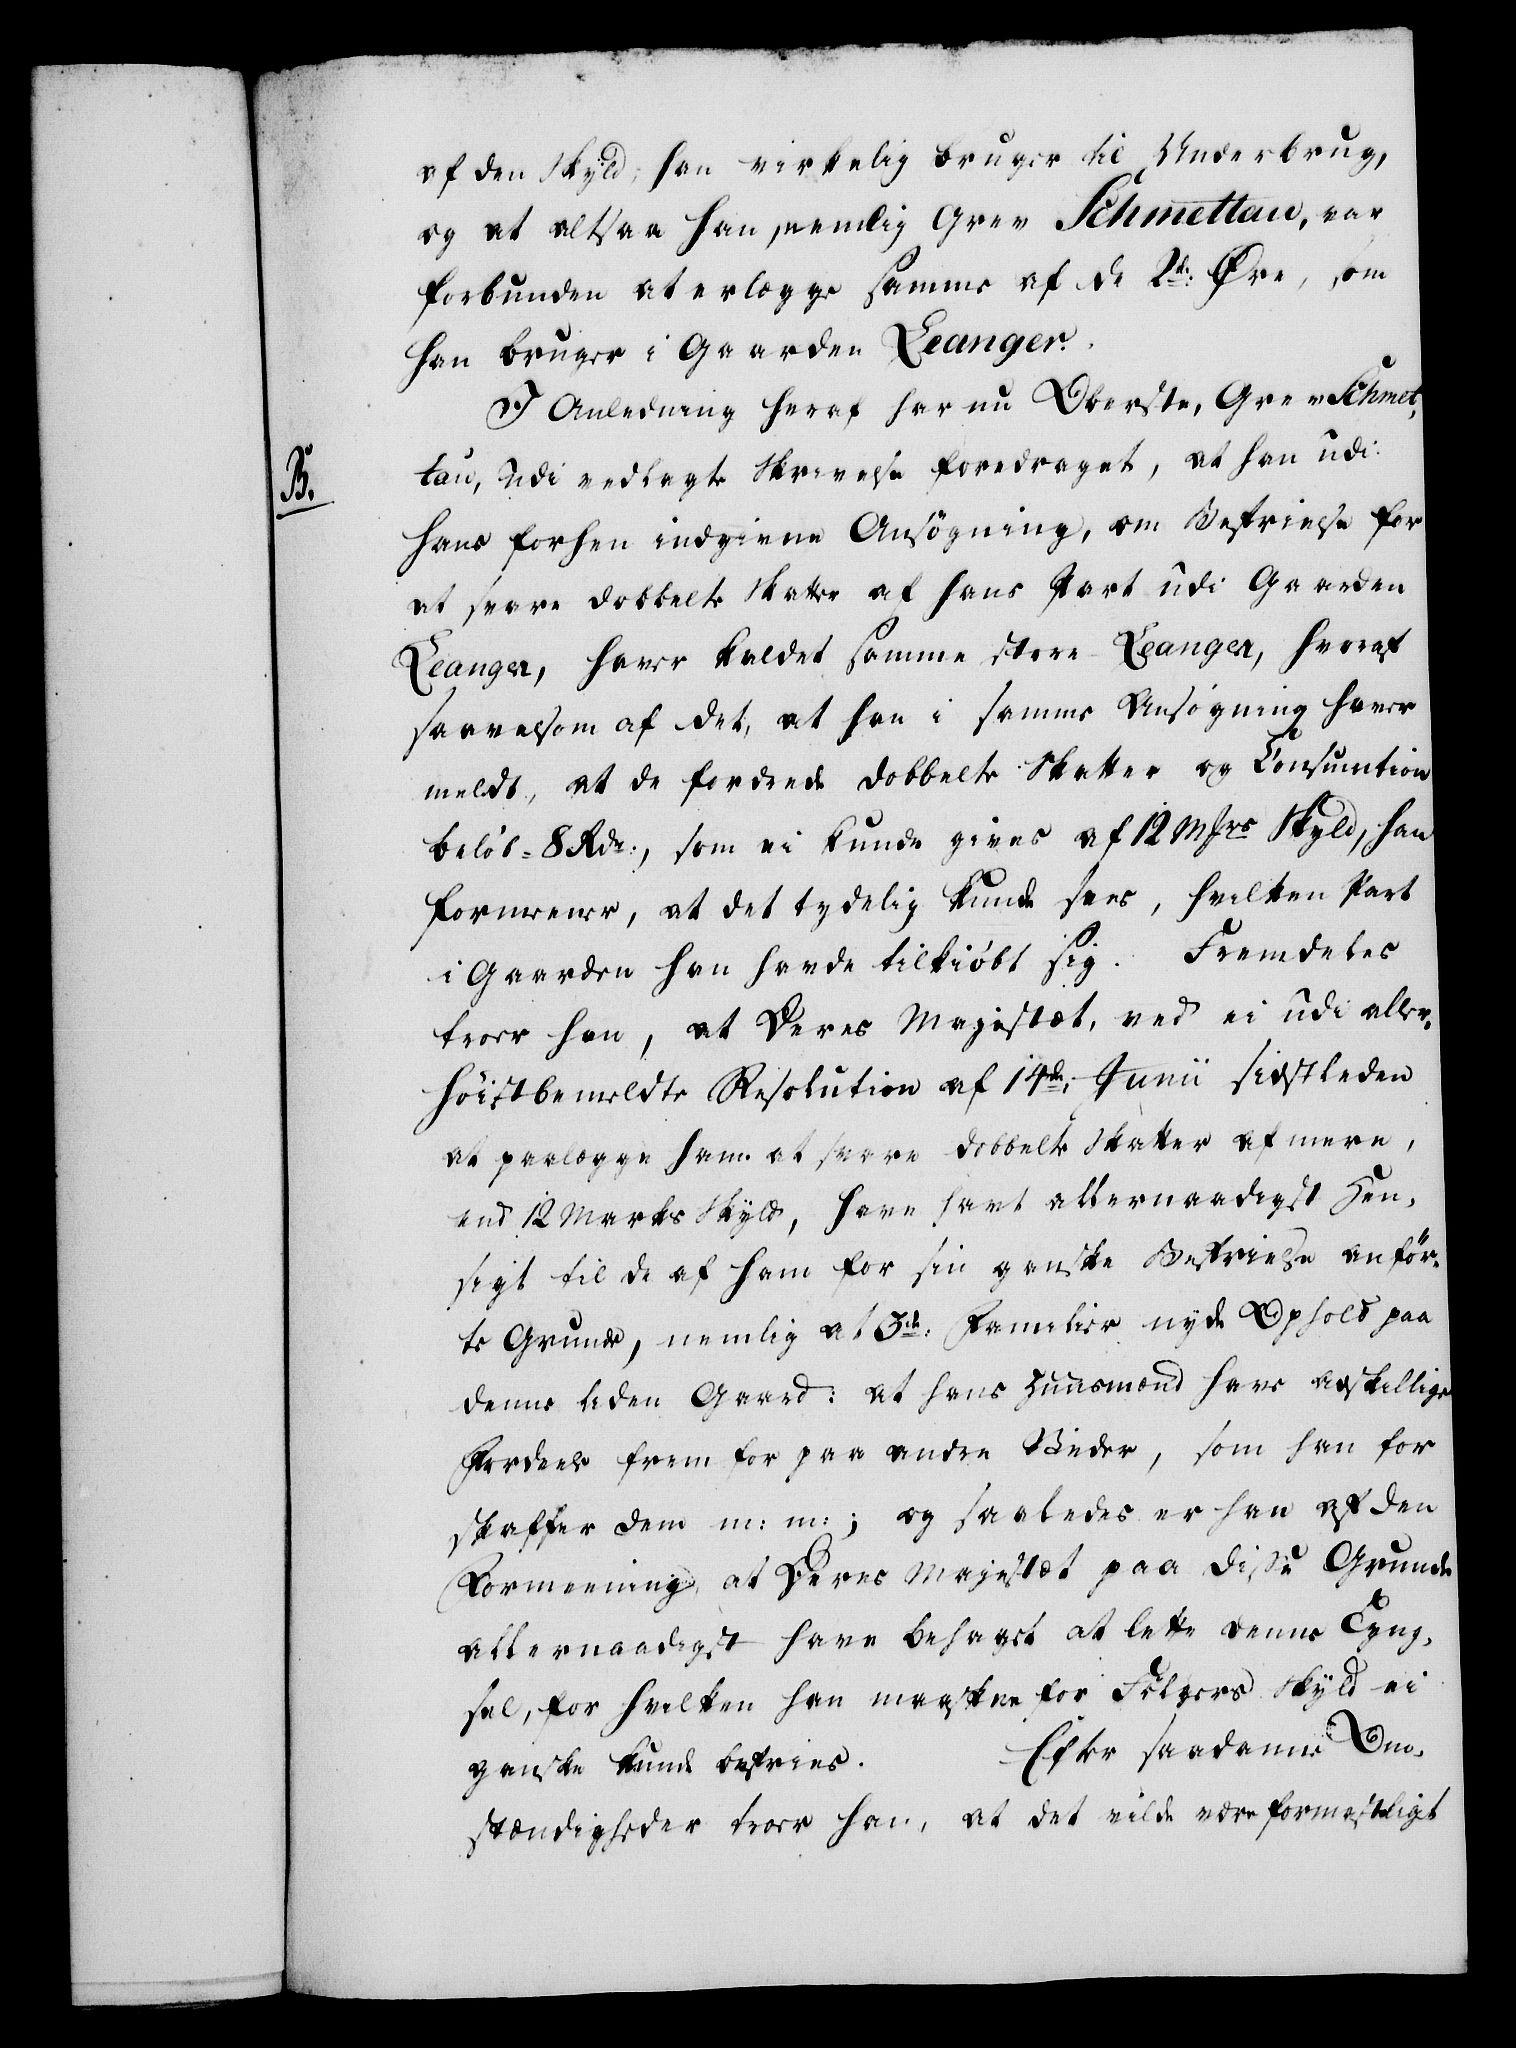 af den Skyld, han virkelig bruger til Underbrug,
og at altsaa han, nemlig Grev Schmettau, var
forbunden at erlægge samme af de 2de: Øre, som
han bruger i Gaarden Leanger.
I Anledning heraf har nu Oberste, Grev Schmet-
B.
tau, udi vedlagte Skrivelse foredraget, at han udi
hans forhen indgivne Ansøgning, om Befrielse for
at svare dobbelte Skatter af hans Part udi Gaarden
Leanger, haver kaldet samme store Leanger, hvoraf
saavelsom af det, at han i samme Ansøgning haver
meldt, at de fordrede dobbelte Skatter og Consumtion
beløb = 8 Rdr:, som ei kunde gives af 12 Mks Skyld, han
formener, at det tydelig kunde sees, hvilken Part
i Gaarden han havde tilkiøbt sig. Fremdeles
troer han, at Deres Majestæt, ved ei udi aller-
høistbemeldte Resolution af 14de: Junii sidstleden
at paalægge ham at svare dobbelte Skatter af mere,
end 12 Marks Skyld, have havt allernaadigst Hen-
sigt til de af ham for sin ganske Befrielse anfør-
te Grunde, nemlig at 3de: Familier nyde Ophold paa
denne liden Gaard: at hans Huusmænd have adskillige
Fordeele frem for paa andre Stæder, som han for
skaffer dem m: m:; og saaledes er han af den
Formeening, at Deres Majestæt paa disse Grunde
allernaadigst have behaget at lette denne Tyng-
sel, for hvilken han maaskee for Følgers Skyld ei
ganske kunde befries. Efter saadanne Om-
stændigheder troer han, at det vilde være formasteligt